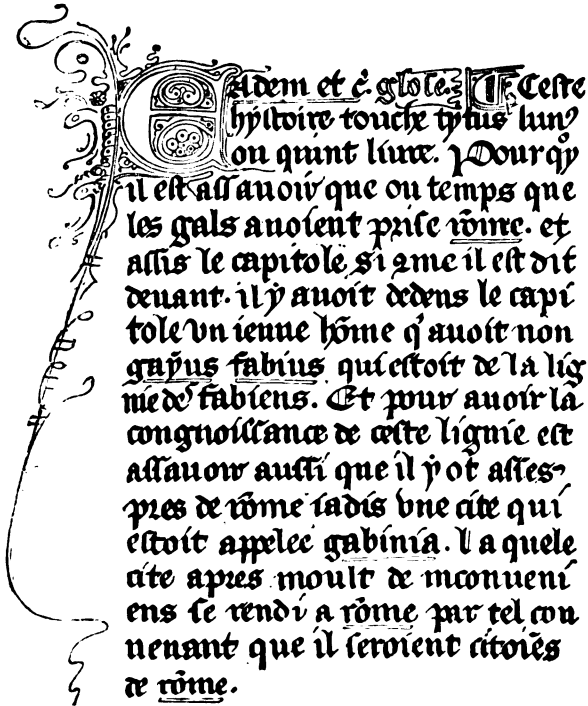 Eadem et c̄. glose. Ceste
hystoire touche tytus liuiꝰ
ou quint liure. Pour qͦy
il est assauoir que ou temps que
les gals auoient prise rōme. et
assis le capitole, si ꝯme il est dit
deuant. il ẏ auoit dedens le capi
tole vn ieune hōme qͥ auoit non
gaẏus fabius qui estoit de la lig
nie des fabiens. Et pour auoir la
congnoissance de ceste lignie est
assauoir aussi que il ẏ ot asses
pres de rōme iadis vne cite qui
estoit appelee gabinia. la quele
cite apres moult de inconueni
ens se rendi a rōme par tel con
uenant que il seroient citoiēs
de rōme.